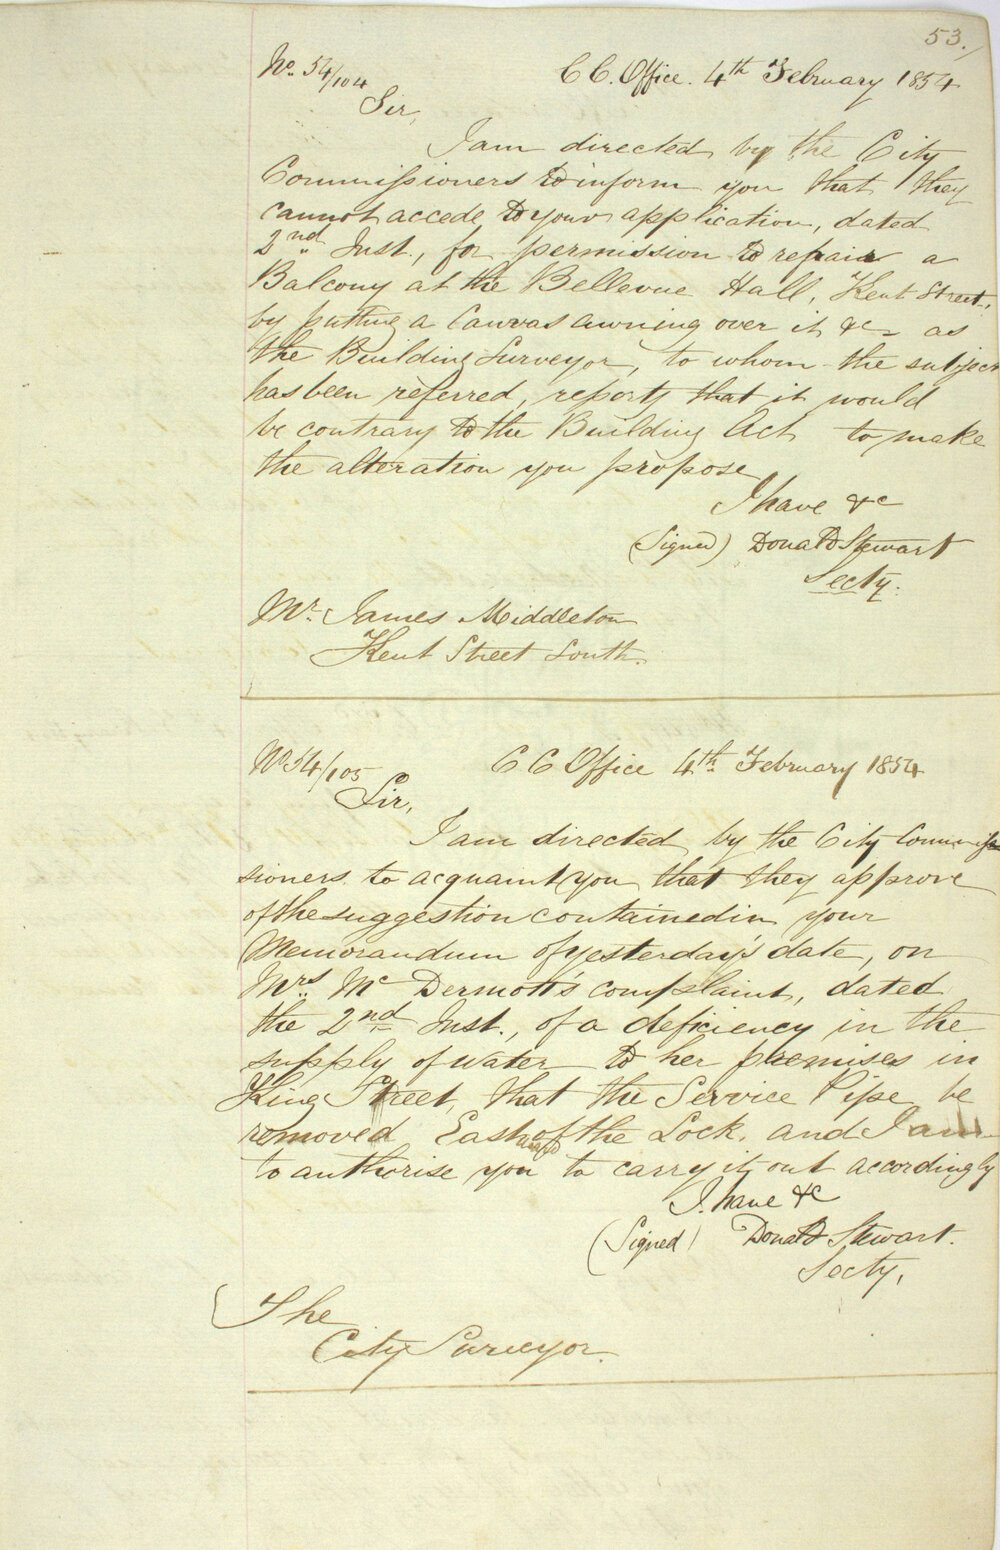 53.
No. 54/104 C C. Office. 4th February 1854
Sir,
I am directed by the City
Commissioners to inform you that they
cannot accede to your application, dated
2nd Inst., for permission to repair a
Balcony at the Bellevue Hall, Kent Street,
by putting a Canvas awning over it &c as
the Building Surveyor, to whom the subject
has been referred, reports that it would
be contrary to the Building Act to make
the alteration you propose
I have &c
(Signed) Donald Stewart
Secty.
Mr. James Middleton
Kent Street South.
No 54/105 C C Office 4th February 1854
Sir,
I am directed by the City Commis
sioners to acquaint you that they approve
of the suggestion contained in your
Memorandum of yesterday's date, on
Mrs Mc Dermott's complaint, dated
the 2nd Inst., of a deficiency in the
supply of water to her premises in
King Street, that the Service Pipe be
removed East of the Lock, and I am
to authorise you to carry it out accordingly
I. have &c
(Signed) Donald Stewart.
Secty,
The
City Surveyor.